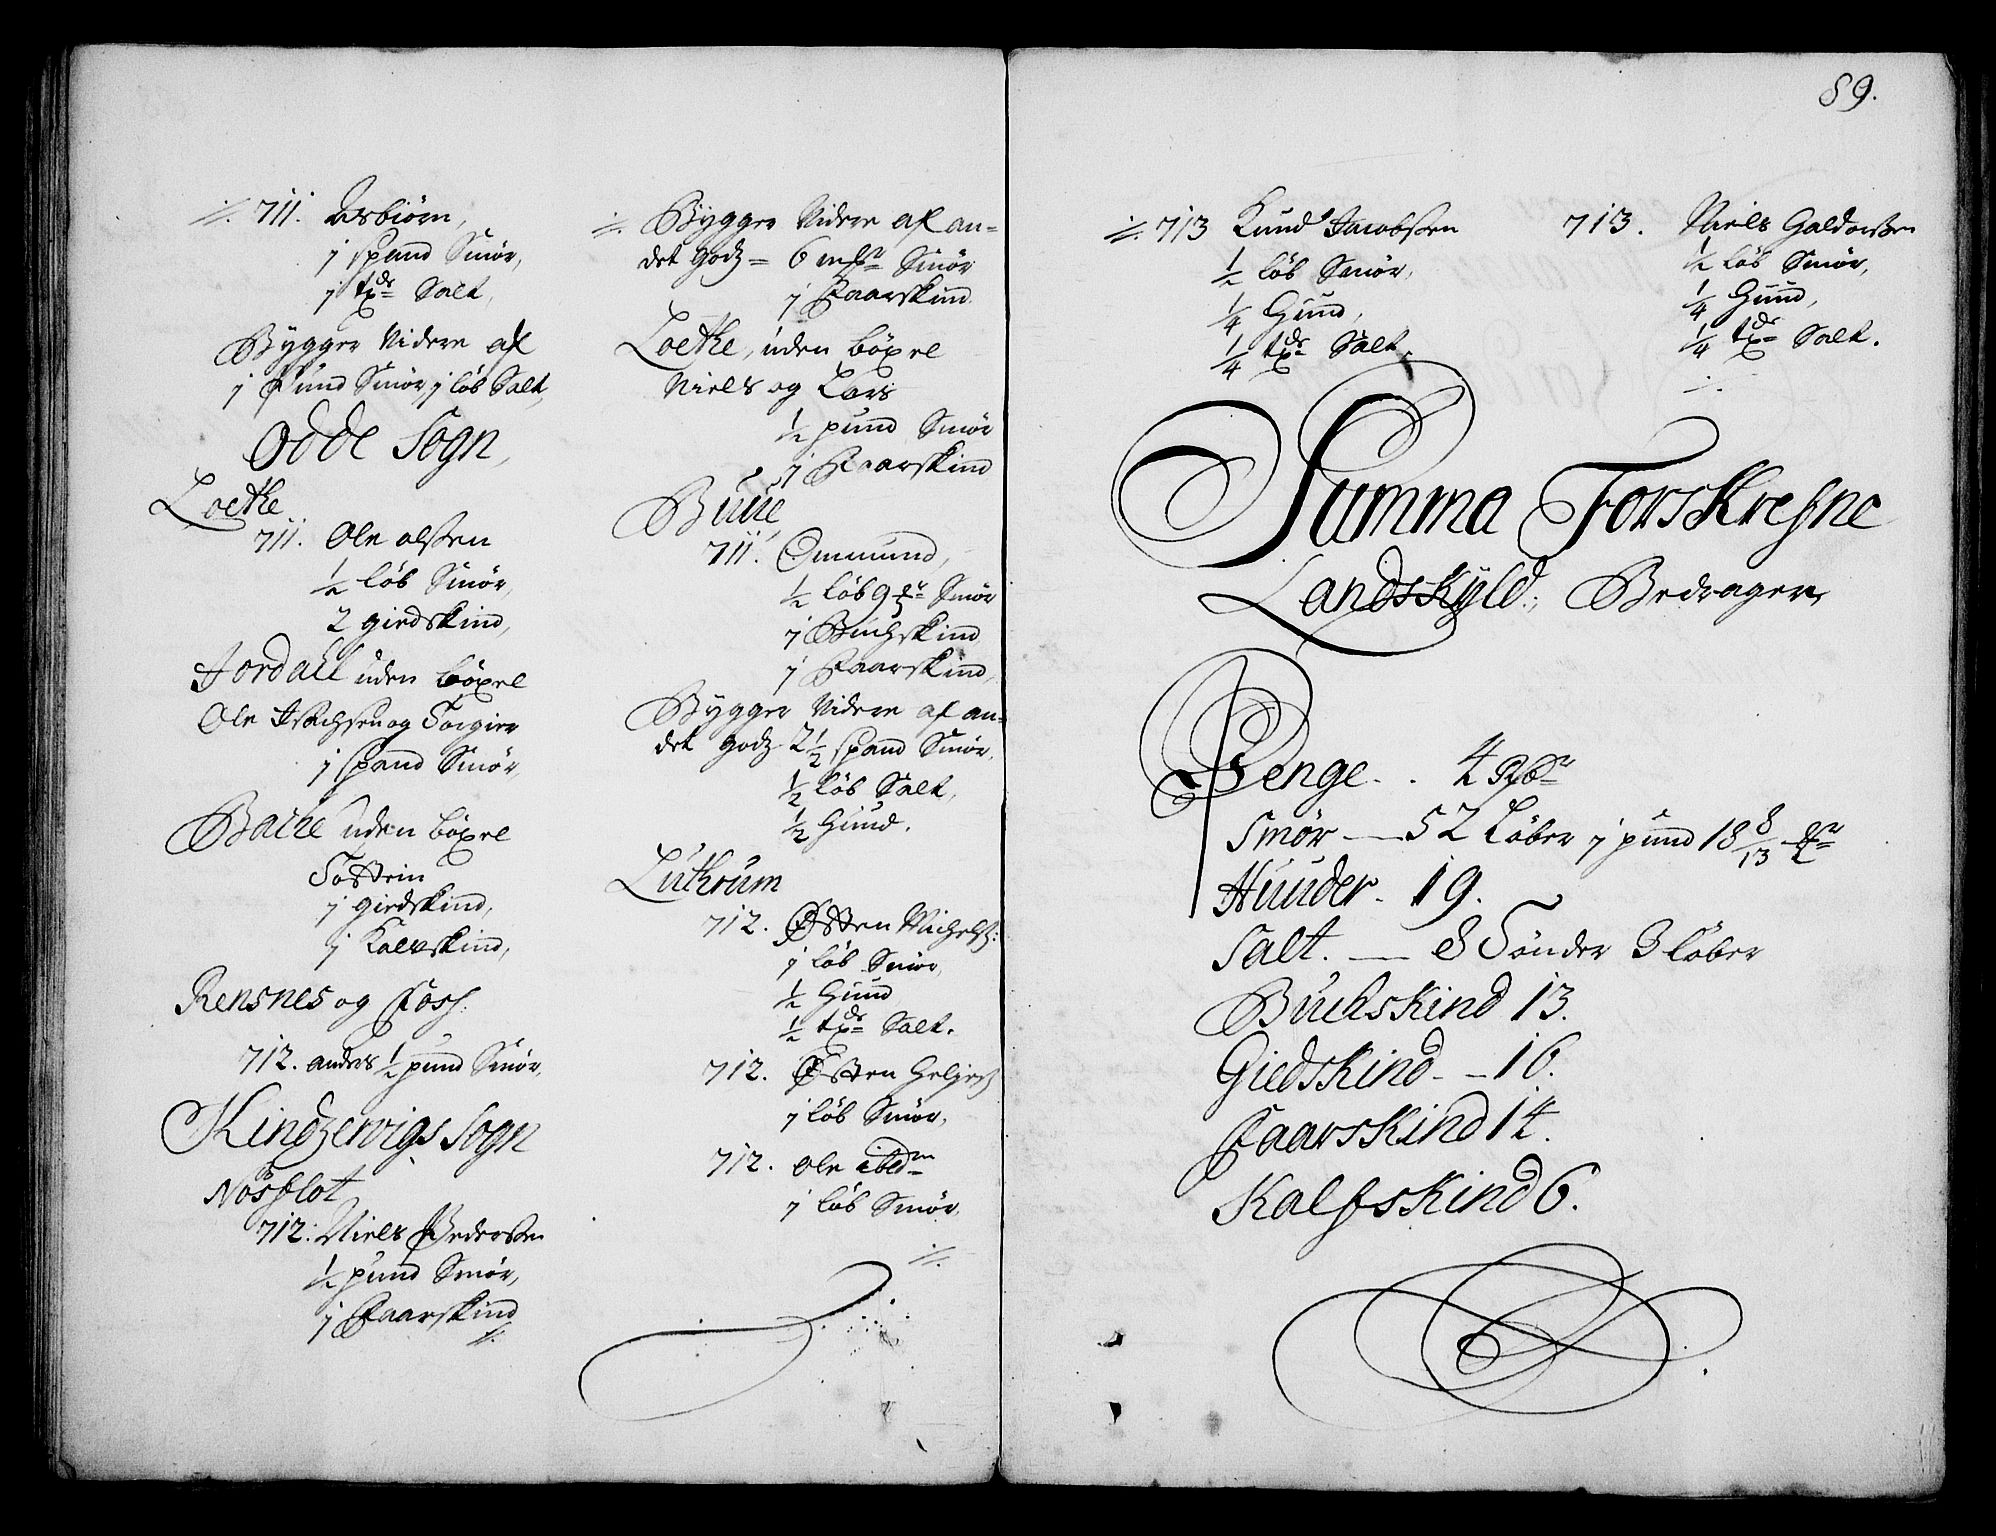 711. Asbiørn,
j spand Smør,
j tde Salt,
Bygger Videre af
j Pund Smør, j løb Salt,
Odde Sogn,
Loethe
711. Ole olssen
½ løb Smør,
2 giedskind,
Jordall uden bøxel
Ole Isachsen og Torgier
j spand Smør,
Bache uden bøxel
Tosten
j giedskind,
j Kalvskind,
Rensnes og Foss.
712. anders ½ pund Smør,
Kindzervigs Sogn
712. Niels Pedersen
½ pund Smør,
j Faarskind
Bygger Videre af an-
det godz - 6 mkr Smør
j Faarskind
Loethe, uden bøxel
Niels og Lars
½ pund Smør
j Faarskind
Buue,
711. Ommund,
½ løb 9 mkr Smør
j Buchskind
j Faarskind,
Bygger Videre af an-
det godz 2½ spand Smør,
½ løb Salt,
½ Huud.
Luthrum
712. Østen Michelss:
j løb Smør,
½ Huud
½ tde Salt.
712. Østen Helgess
j løb Smør,
712. Ole ibdm
j løb Smør,
89.
713 Knud Jacobssen
½ løb Smør,
¼ Huud,
¼ tde Salt,
713. Niels Galdorssen
½ løb Smør,
¼ Huud,
¼ tde Salt.
Summa Forskrefne
Landskyld; Bedrager,
Penge.. 4 Rdr
Smør — 52 Løber j pund 18 8/13 mkr
Huuder. 19.
Salt. — 8 Tønder 3 løber
Buchskind 13.
Giedskind - - 16.
Faarskind 14.
Kalfskind 6.